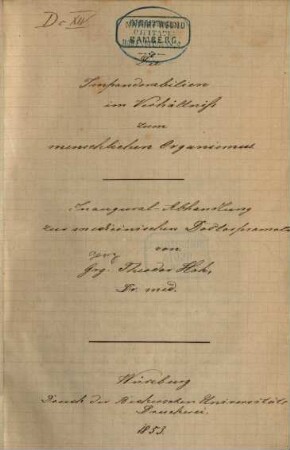 Die
Imponderabilien
im Verhältniß
zum
menschlichen Organismus
Inaugural-Abhandlung
zur medicinischen Doctorpromotion
von
Georg
Grg. Theodor Hoh,
Dr. med.
Würzburg
Druck der Universitäts
Druckerei.
1853.